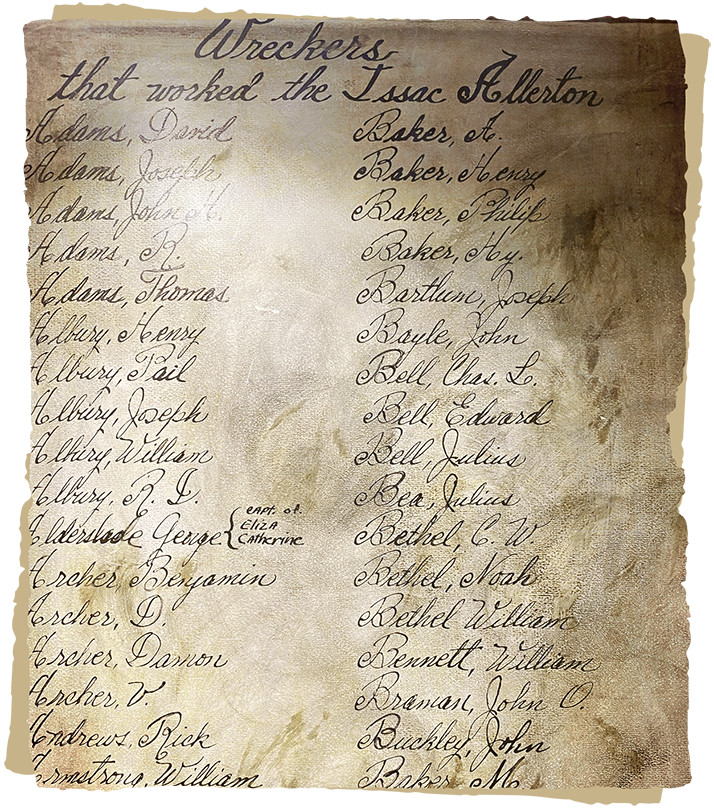 Wreckers
that worked the Issac Allerton
Adams, David
Adams, Joseph
Adams, John H.
Adams, R.
Adams, Thomas
Albury, Henry
Albury, Pail
Albury, Joseph
Albury, William
Albury, R. I.
Alderslade George { capt. of. ELIZA CATHERINE
Archer, Benjamin
Archer, D.
Archer, Damon
Archer, V.
Andrews, Rick
Armstrong, William
Baker, A.
Baker, Henry
Baker, Philip
Baker, Hy.
Bartlum, Joseph
Bayle, John
Bell, Chas. L.
Bell, Edward
Bell, Julius
Bea, Julius
Bethel, C. W.
Bethel, Noah
Bethel William
Bennett, William
Braman, John O.
Buckley, John
Baker, M.